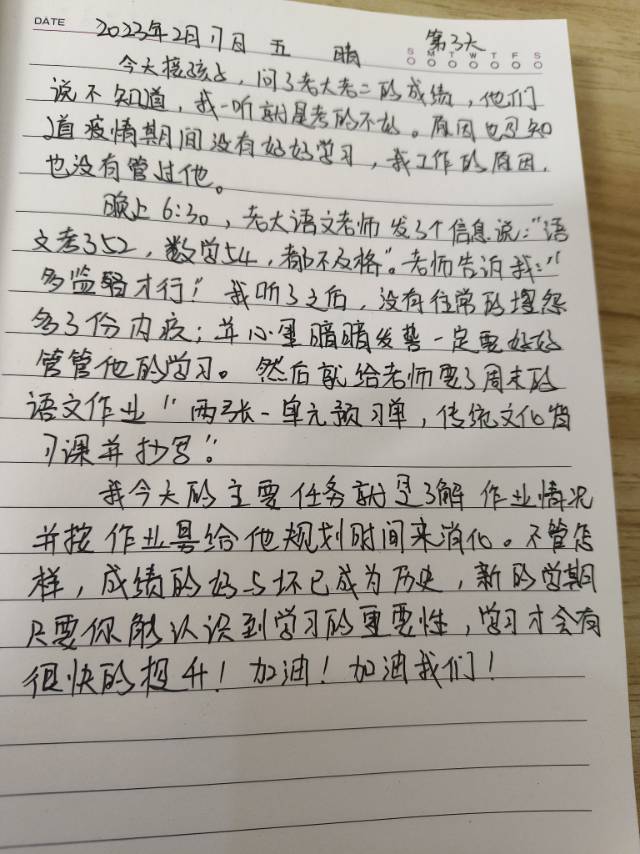 DATE 2023年2月17日 五 晴 第3天
S M T W T F S
今天接孩子，问了老大老二的成绩，他们
说不知道，我一听就是考的不好。原因也可知
道疫情期间没有好好学习，我工作的原因，
也没有管过他。
晚上6:30，老大语文老师发了个信息说："语
文考352，数学54，都不及格"。老师告诉我："
多监督才行！我听了之后，没有往常的埋怨
多了份内疚；并心里暗暗发誓一定要好好
管管他的学习。然后就给老师要了周末的
语文作业"两张一单元预习单，传统文化
习课并抄写"
我今天的主要任务就是了解作业情况
并按作业量给他规划时间来消化。不管怎
样，成绩的好与坏已成为历史，新的学期
只要你能认识到学习的重要性，学习才会有
很快的提升！加油！加油我们！